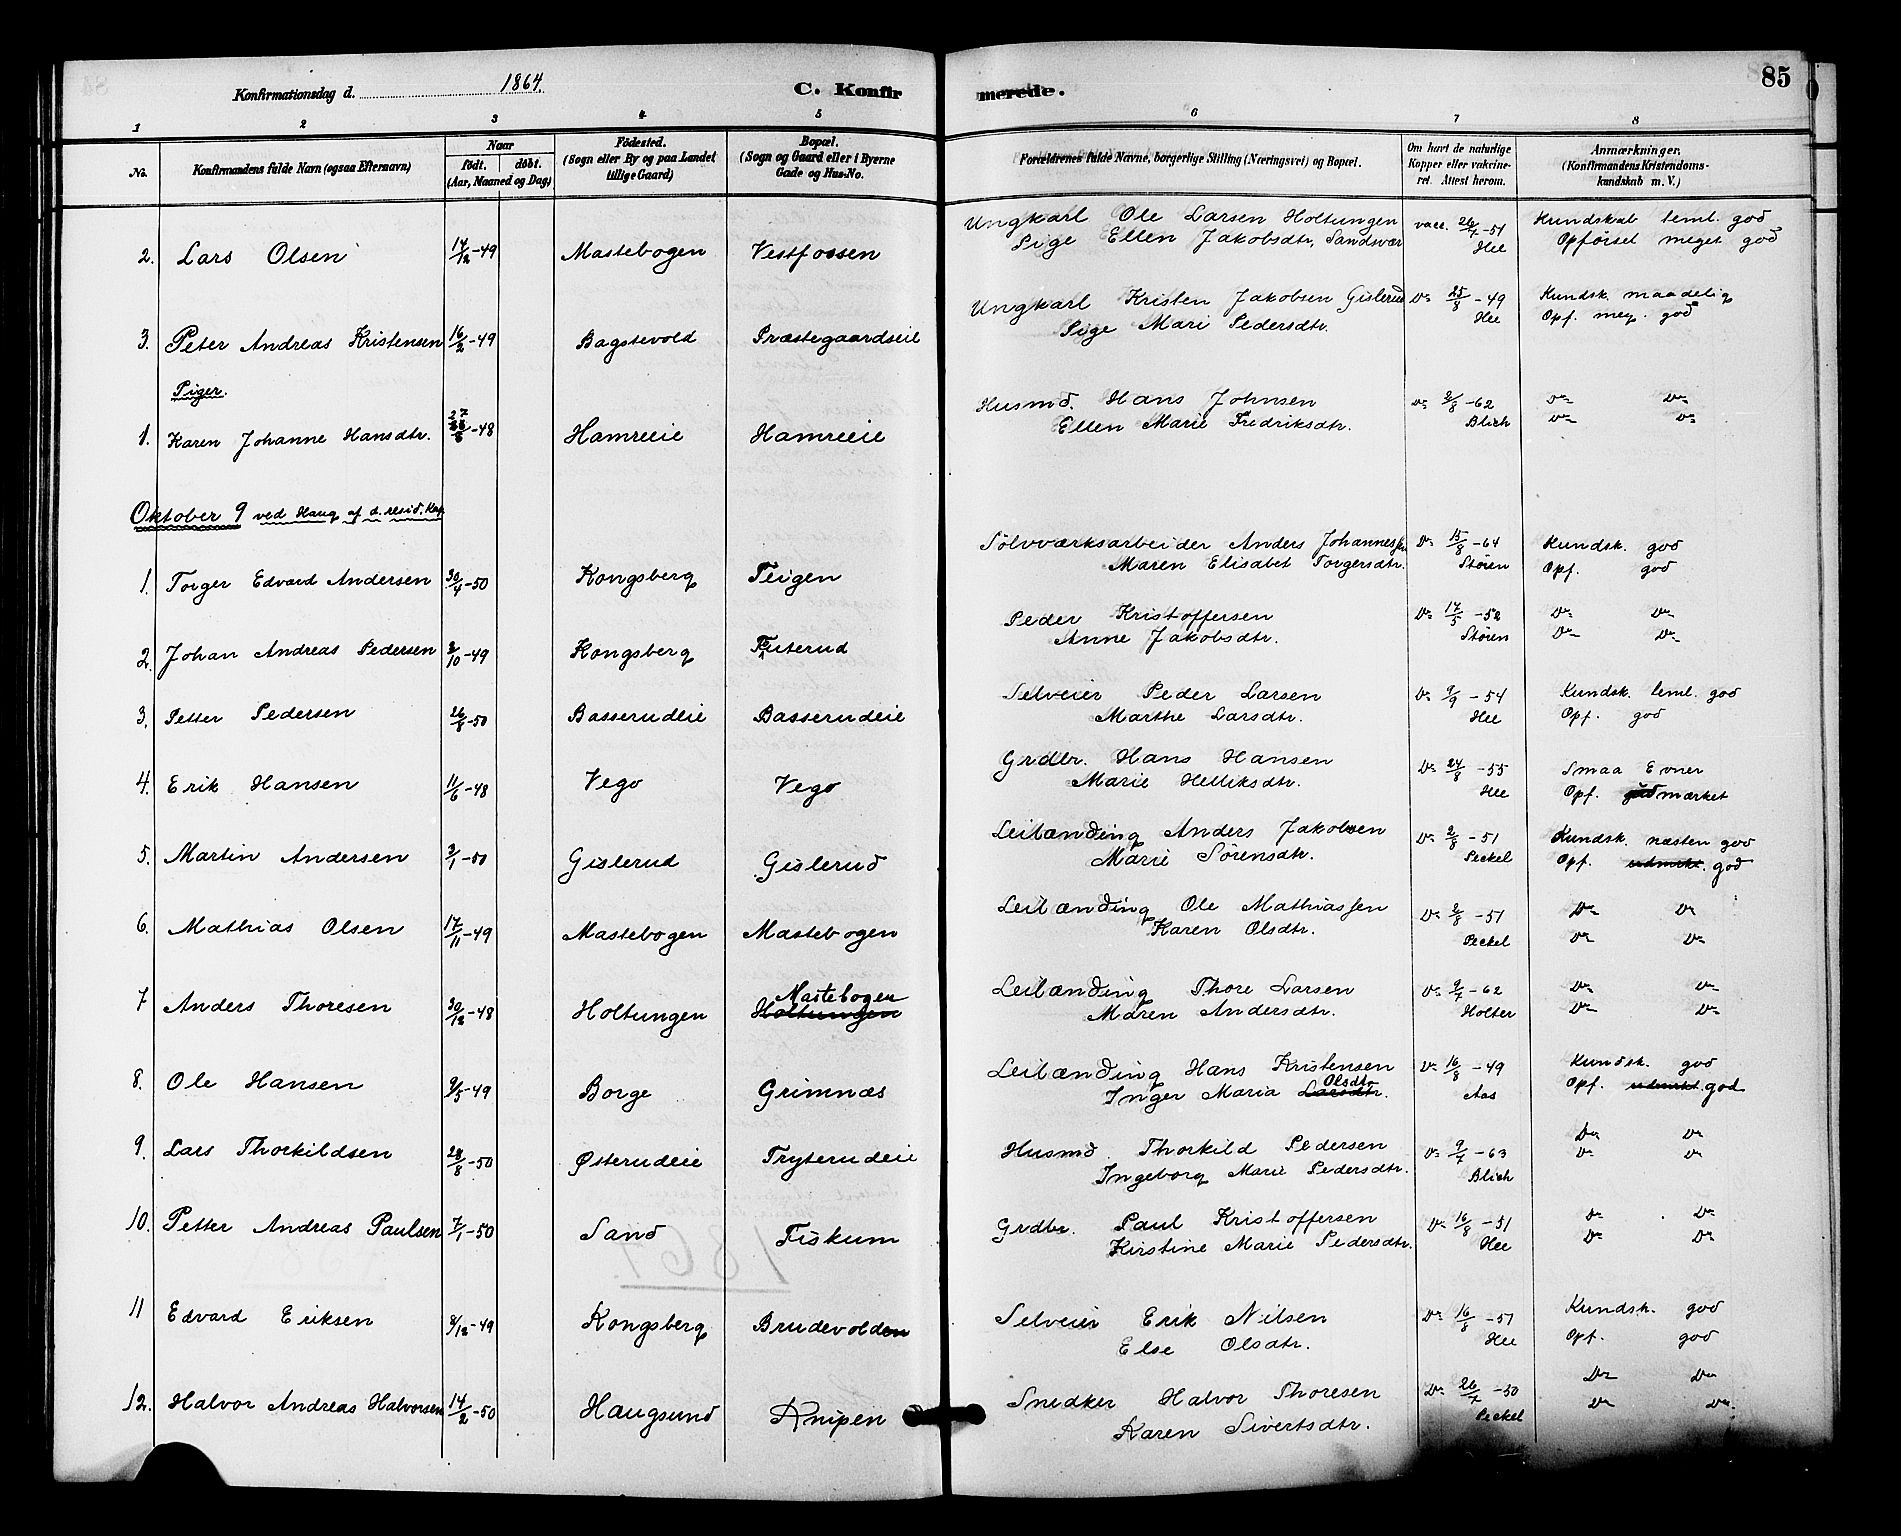 Konfirmationsdag d. 1864. C. Konfirmerede. 85
1 2 3 4 5 6 7 8
No. Konfirmandens fulde Navn (ogsaa Efternavn) Naar født. døbt. (Aar, Maaned og Dag) Fødested. (Sogn eller By og paa Landet tillige Gaard) Bopæl. (Sogn og Gaard eller i Byerne Gade og Hus-No. Forældrenes fulde Navne, borgerlige Stilling (Næringsvei) og Bopæl. Om havt de naturlige Kopper eller vakcineret. Attest herom. Anmærkninger. (Konfirmandens Kristendomskundskab m. V.)
2. Lars Olsen 14/12-49 Mastebogen Vestfossen Ungkarl Ole Larsen Holtungen vacc. 26/7-51 Kundskab teml. god
Pige Ellen Jakobsdtr, Sandsvær Hee Opførsel meget god
3. Peter Andreas Kristensen 16/2-49 Bagstevold Præstegaardseie Ungkarl Kristen Jakobsen Gislerud Do 25/8-49 Kundsk. maadelig
Pige Mari Pedersdtr. Hee Opf. meg. god
Piger.
1. Karen Johanne Hansdtr. 27/8-48 Hamreeie Hamreeie Husmd. Hans Johnsen Do 3/8-62 Do Do
Ellen Marie Fredriksdtr. Blich Do Do
Oktober 9 ved Haug af d. resid. Kap.
1. Torger Edvard Andersen 30/4-50 Kongsberg Teigen Sølvværksarbeider Anders Johannessen Do 15/8-64 Kundsk. god
Maren Elisabet Torgersdtr. Støren Opf. god
2. Johan Andreas Pedersen 2/10-49 Kongsberg Futerud Peder Kristoffersen Do 17/5-52 Do Do
Anne Jakobsdtr. Støren Do Do
3. Petter Pedersen 26/8-50 Basserudeie Basserudeie Selveier Peder Larsen Do 9/9-54 Kundsk. teml. god
Marthe Larsdtr. Hee Opf. god
4. Erik Hansen 11/6-48 Vego Vego Grdbr. Hans Hansen Do 24/8-55 Smaa Evner
Marie Helliksdtr. Hee Opf. god mærket
5. Martin Andersen 3/1-50 Gislerud Gislerud Leilænding Anders Jakobsen Do 2/8-51 Kundsk. næsten god
Marie Sørensdtr. Peckel Opf. udmrkt. god
6. Mathias Olsen 17/11-49 Mastebogen Mastebogen Leilænding Ole Mathiassen Do 2/8-51 Do Do
Karen Olsdtr. Peckel Do Do
7 Anders Thoresen 30/12-48 Holtungen Mastebogen Holtungen Leilænding Thore Larsen Do 9/7-62 Do Do
Maren Andersdtr. Holter Do Do
8. Ole Hansen 9/5-49 Borge Grimnæs Leilænding Hans Kristensen Do 16/8-49 Kundsk. god
Inger Maria Larsdtr. Olsdtr Aas Opf. udmrkt. god
9. Lars Thorkildsen 28/8-50 Østerudeie Tryterudeie Husmd. Thorkild Pedersen Do 9/7-63 Do Do
Ingeborg Marie Pedersdtr. Blich Do Do
10. Petter Andreas Paulsen 7/1-50 Sand Fiskum Grdbr. Paul Kristoffersen Do 16/8-51 Do Do
Kirstine Marie Pedersdtr. Hee Do Do
11 Edvard Eriksen 8/12-49 Kongsberg Brudevolden Selveier Erik Nilsen Do 16/8-51 Kundsk. god
Else Olsdtr. Hee Opf. god
12. Halvor Andreas Halvorsen 14/2-50 Haugsund Knipen Snedker Halvor Thoresen Do 26/7-50 Do Do
Karen Sivertsdtr. Peckel Do Do